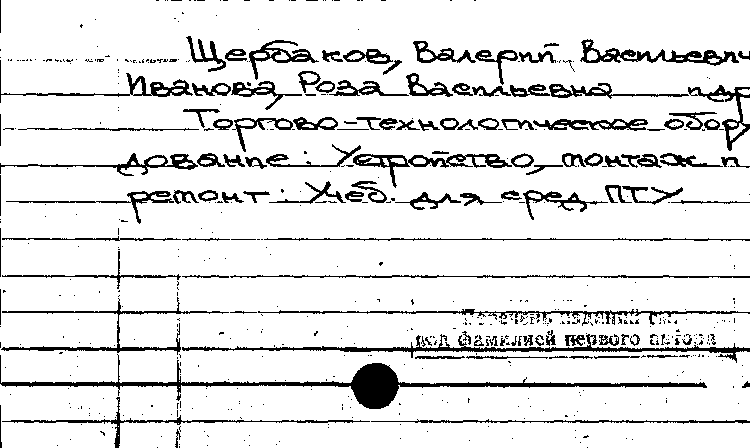 Щербаков, Валерий Васильевич
Иванова, Роза Васильевна и др
Торгово-технологическое обору
дование: Устройство, монтаж и
ремонт: Учеб. для сред. ПТУ
Перечень изданий см.
под фамилией первого автора